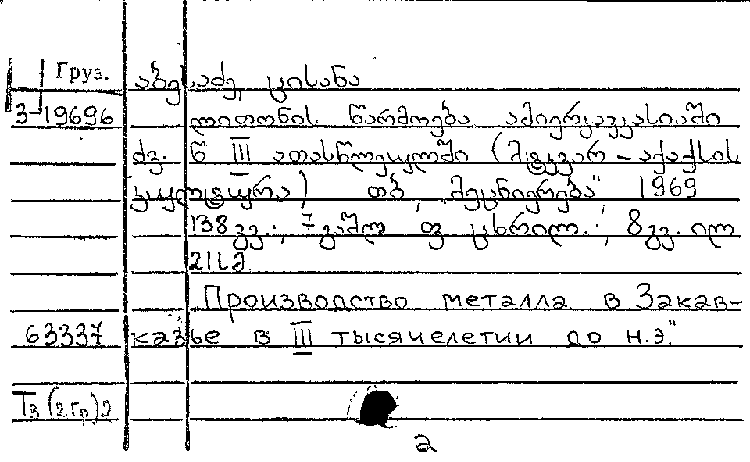 Груз. აბესაძე, ცისანა
3-19696 ლითონის წარმოება ამიერკავკასიაში
ძვ. წ III ათასწლეულში (მტკვარ-აქაქსის
კულტურა) თბ „მეცნიერება" 1969
138 გვ.; 7 გაშლ ფ. ცხრილ.; 8 გვ. ილ
21სმ
Производство металла в Закав-
63337 казье в III тысячелетии до н.э."
Тз (2гр)2
2